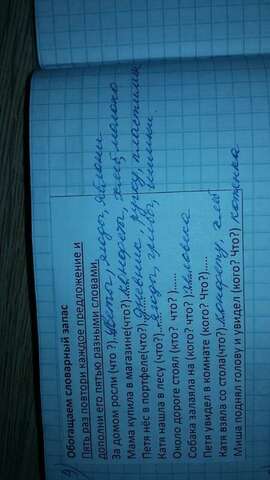 Обогащаем словарный запас
Пять раз повтори каждое предложение и
дополни его пятью разными словами.
За домом росли (что ?) цветы, ягоды, яблони.
Мама купила в магазине(что?) хлеб, молоко
Петя нёс в портфеле(что?) дневник, ручку, пластилин
Катя нашла в лесу (что?) ягоды, грибы, шишки.
Около дороге стоял (кто? что? )......
Собака залаяла на (кого? что? ) человека
Петя увидел в комнате (кого? Что?)....
Катя взяла со стола(что?) конфету,
Миша поднял голову и увидел (кого? Что?) котенка